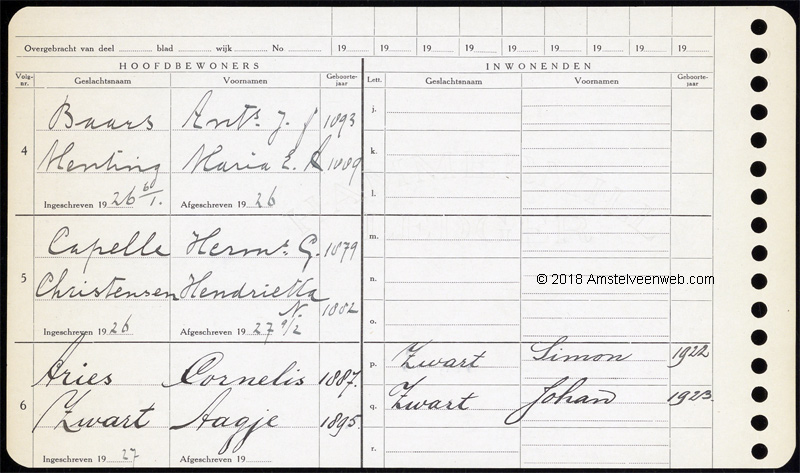 Overgebracht van deel blad wijk No 19 19 19 19 19 19 19 19 19
HOOFDBEWONERS INWONENDEN
Volg-nr. Geslachtsnaam Voornamen Geboorte-jaar Lett. Geslachtsnaam Voornamen Geboorte-jaar
4 Baars Ants. J. J 1893 j.
Menting Maria E. 1889 k.
Ingeschreven 1926 6/1. Afgeschreven 1926 l.
5 Capelle Herms. G. 1879 m.
Christensen Hendrietta N. 1882 n.
© 2018 Amstelveenweb.com
Ingeschreven 1926 Afgeschreven 1927 9/2 o.
6 Aries Cornelis 1887. p. Zwart Simon 1922
Zwart Aagje 1895 q. Zwart Johan 1923.
Ingeschreven 1927 Afgeschreven 19 r.